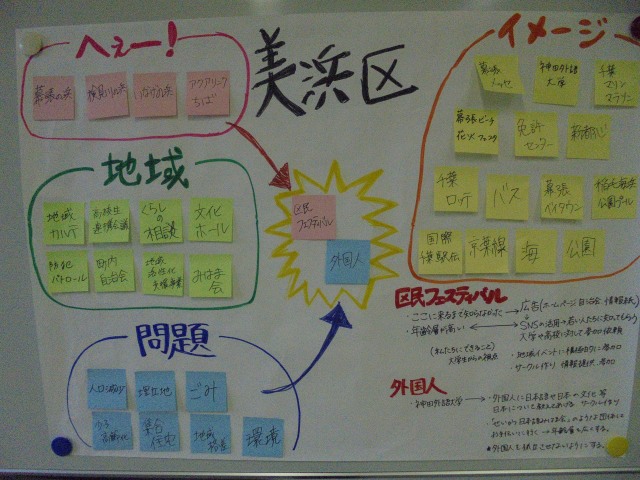 美浜区
へぇー!
幕張の浜
検見川の浜
いなげの浜
アクアリンク
ちば
地域
地域
カルテ
高校生
連携会議
くらしの
相談
文化
ホール
防犯
パトロール
町内
自治会
地域
活性化
支援事業
みはま
会
問題
人口減少
埋立地
ごみ
少子
高齢化
集合
住宅
地域
格差
環境
区民
フェスティバル
外国人
イメージ
幕張
メッセ
神田外語
大学
千葉
マリン
マラソン
幕張ビーチ
花火フェスタ
免許
センター
新都心
千葉
ロッテ
バス
幕張
ベイタウン
稲毛海浜
公園プール
国際
千葉駅伝
京葉線
海
公園
区民フェスティバル
・ここに来るまで知らなかった→広告(ホームページ、自治会、情報誌)
・年齢層が高い
SNSの活用→若い人たちに知ってもらう
大学や高校に対して参加依頼
(私たちにできること)
大学生からの視点
・地域イベントに積極的に参加
・サークル作り、情報提供、参加
外国人
・神田外語大学→・外国人に日本語や日本の文化等
日本について教えてあげる、サークル作り